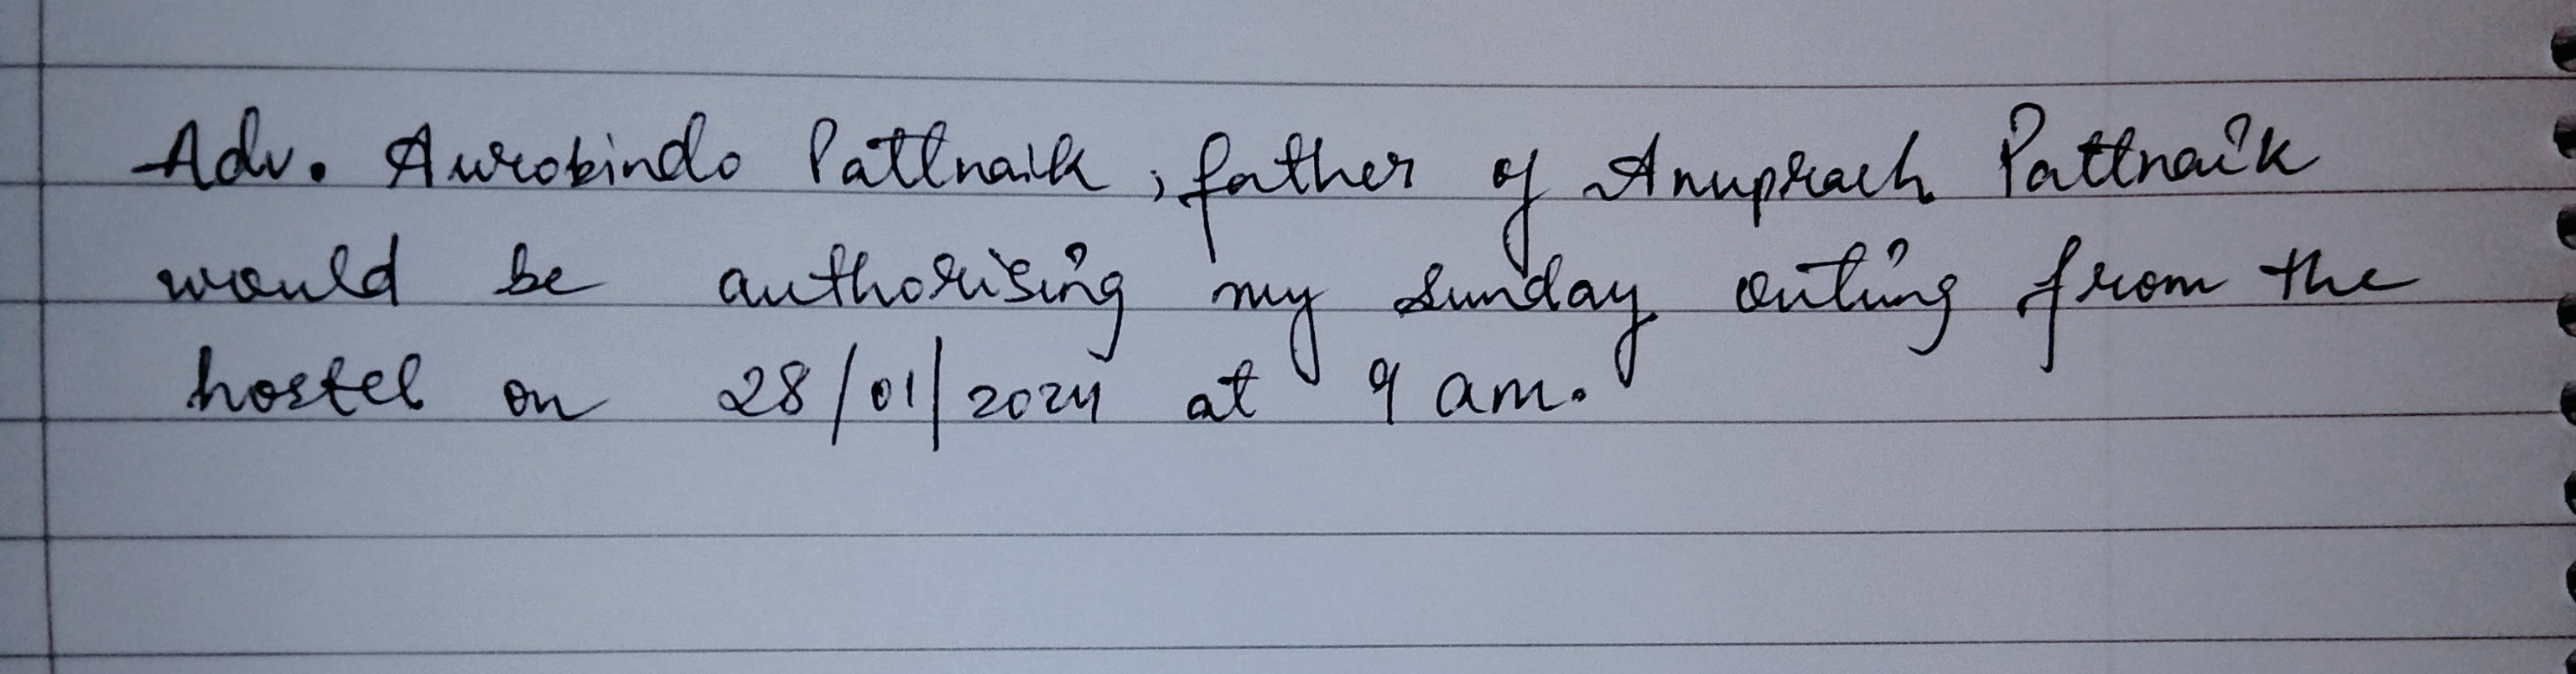 Adv. Aurobindo Pattnaik, father of Anuprach Pattnaik
would be authorising my Sunday outing from the
hostel on 28/01/2024 at 9 am.